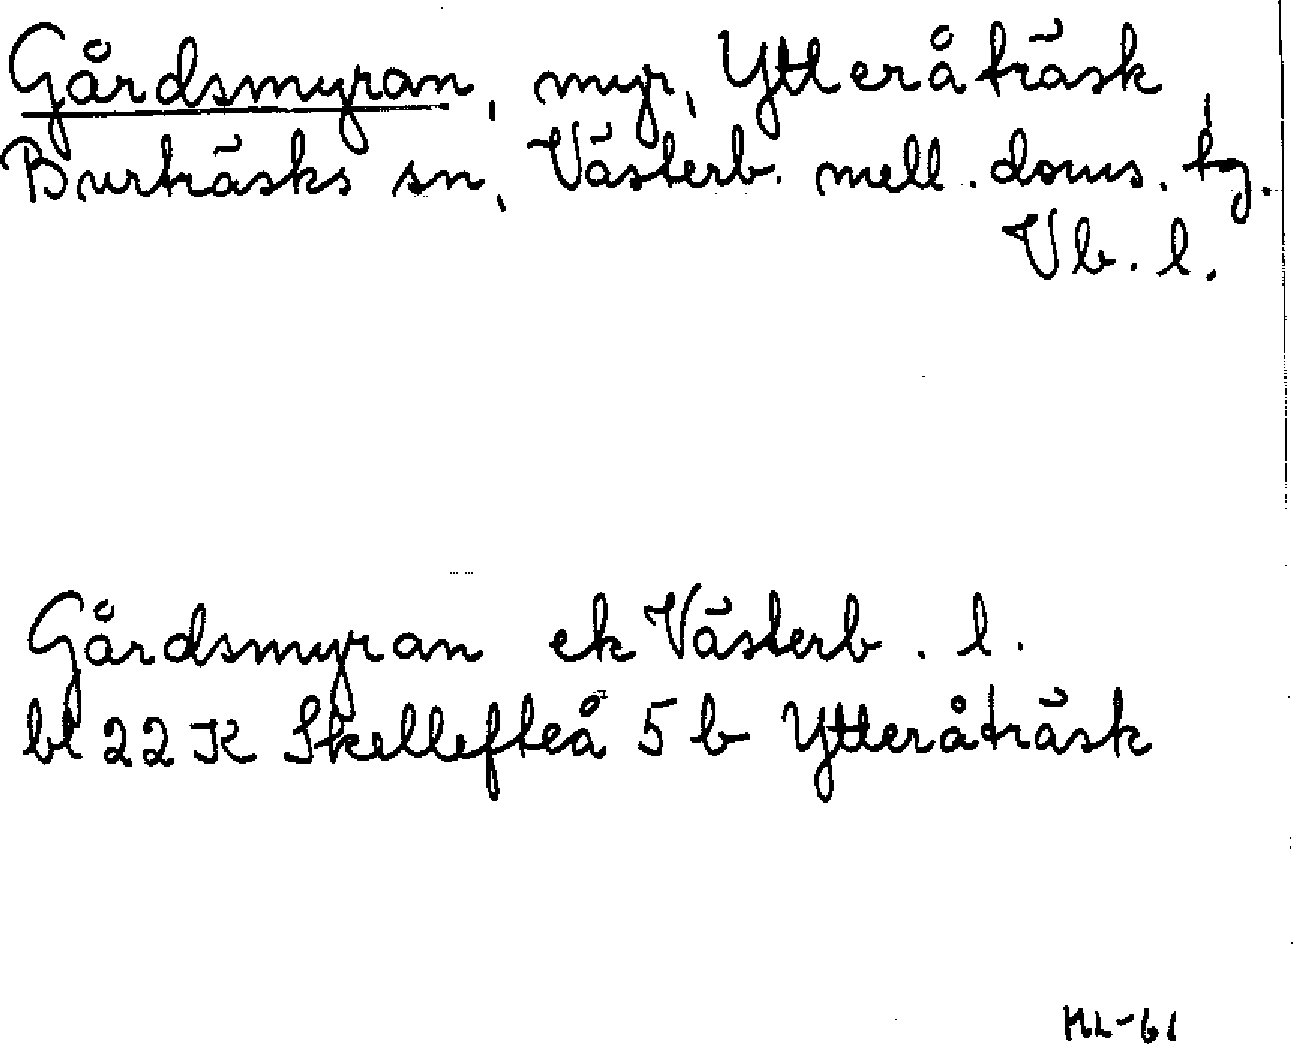 Gårdsmyran, myr, Ytteråträsk,
Burträsks sn, Västerb. mell. doms. tg.
Vb. l.
Gårdsmyran ek Västerb. l.
bl 22 K Skellefteå 5 b Ytteråträsk
ML-61